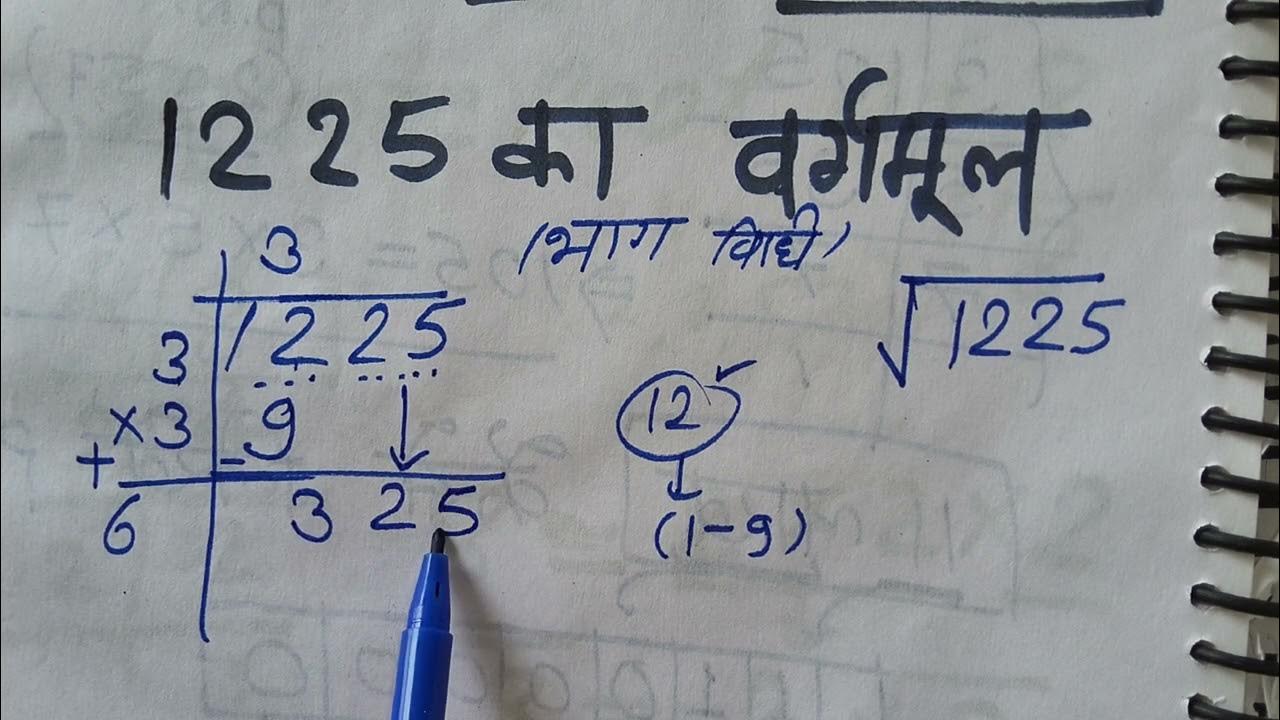 1225 का वर्गमूल
(भाग विधि)
3
3 1225 √1225
×3 -9 12
+
6 325 (1-9)